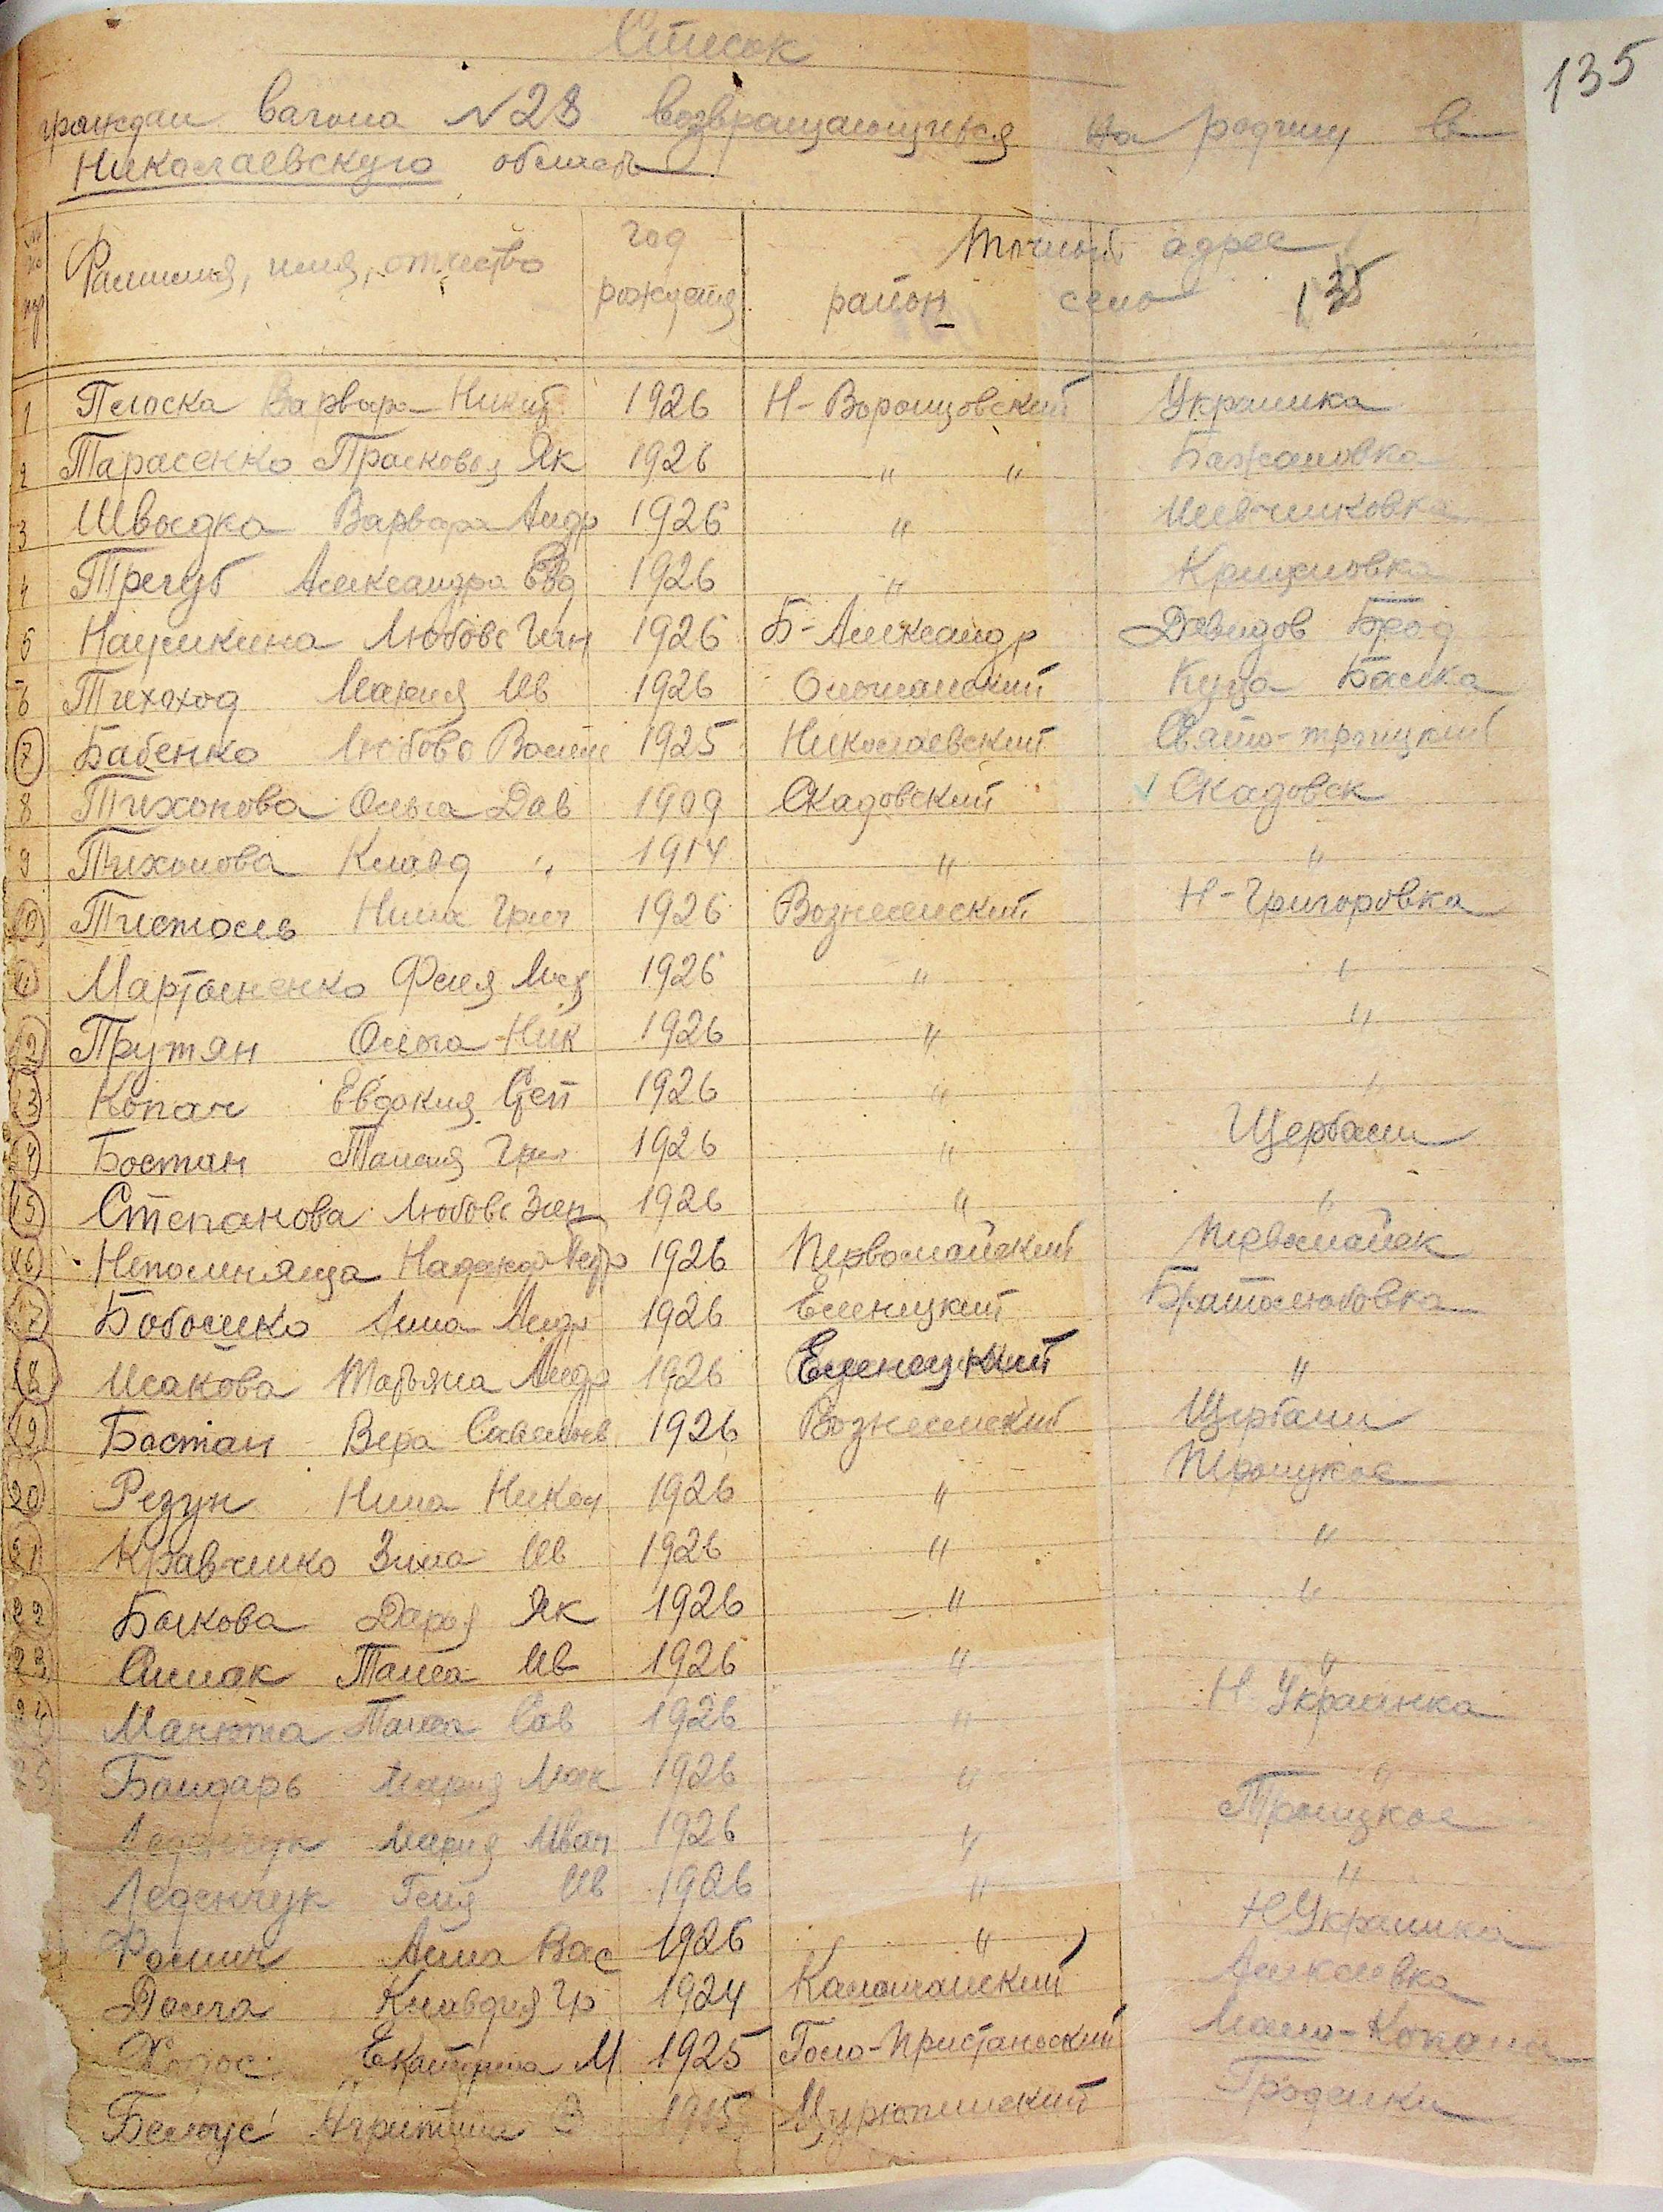 135
Список
граждан вагона №28 возвращающихся на родину в
Николаевскую область
Фамилия, имя, отчество год рождения Точный адрес
район село 135
1 Плоска Варвара Никит. 1926 Н-Воронцовский Украинка
2 Тарасенко Прасковья Як 1926 " " Бажановка
3 Швыдка Варвара Андр 1926 " Шевченковка
4 Трегуб Александра Евд 1926 "
5 Наумкина Любовь 1926 Б-Александр Давидов Брод
6 Тихоход Мария Ив 1926 Ольшанский Куца Балка
7 Бабенко Любовь 1925 Николаевский Свято-троицкий
8 Тихонова Ольга Дав 1909 Скадовский Скадовск
9 Тихонова Клавд " 1914 " "
10 Тистоль Нина Григ 1926 Вознесенский Н-Григоровка
11 Мартыненко 1926 " "
12 Прутян Ольга Ник 1926 " "
13 Копач Евдокия Степ 1926 " "
14 Бостан Таисия Гри 1926 " Щербани
15 Степанова Любовь 1926 " "
16 Непомняща Надежда 1926 Первомайский Первомайск
17 Анна Андр 1926 Еланецкий Братолюбовка
18 Исакова Татьяна Андр 1926 Еланецкий "
19 Бостан Вера Савельев 1926 Вознесенский Щербани
20 Резун Нина Никол 1926 " Троицкое
21 Кравченко Зина Ив 1926 " "
22 Быкова Дарья Як 1926 " "
23 Симак Таиса Ив 1926 " "
24 Манюта Таиса Сав 1926 " Н Украинка
25 Бондарь Мария Мак 1926 " "
Леденчук Мария Иван 1926 " Троицкое
Леденчук Ив 1926 " "
Фомич Анна Вас 1926 " Н Украинка
Долга Клавдия Гр 1924 Каланчакский Алексеевка
Екатерина М 1925 Голо-Пристаньский Мало-Копани
Белоус З 1915 Цурюпинский